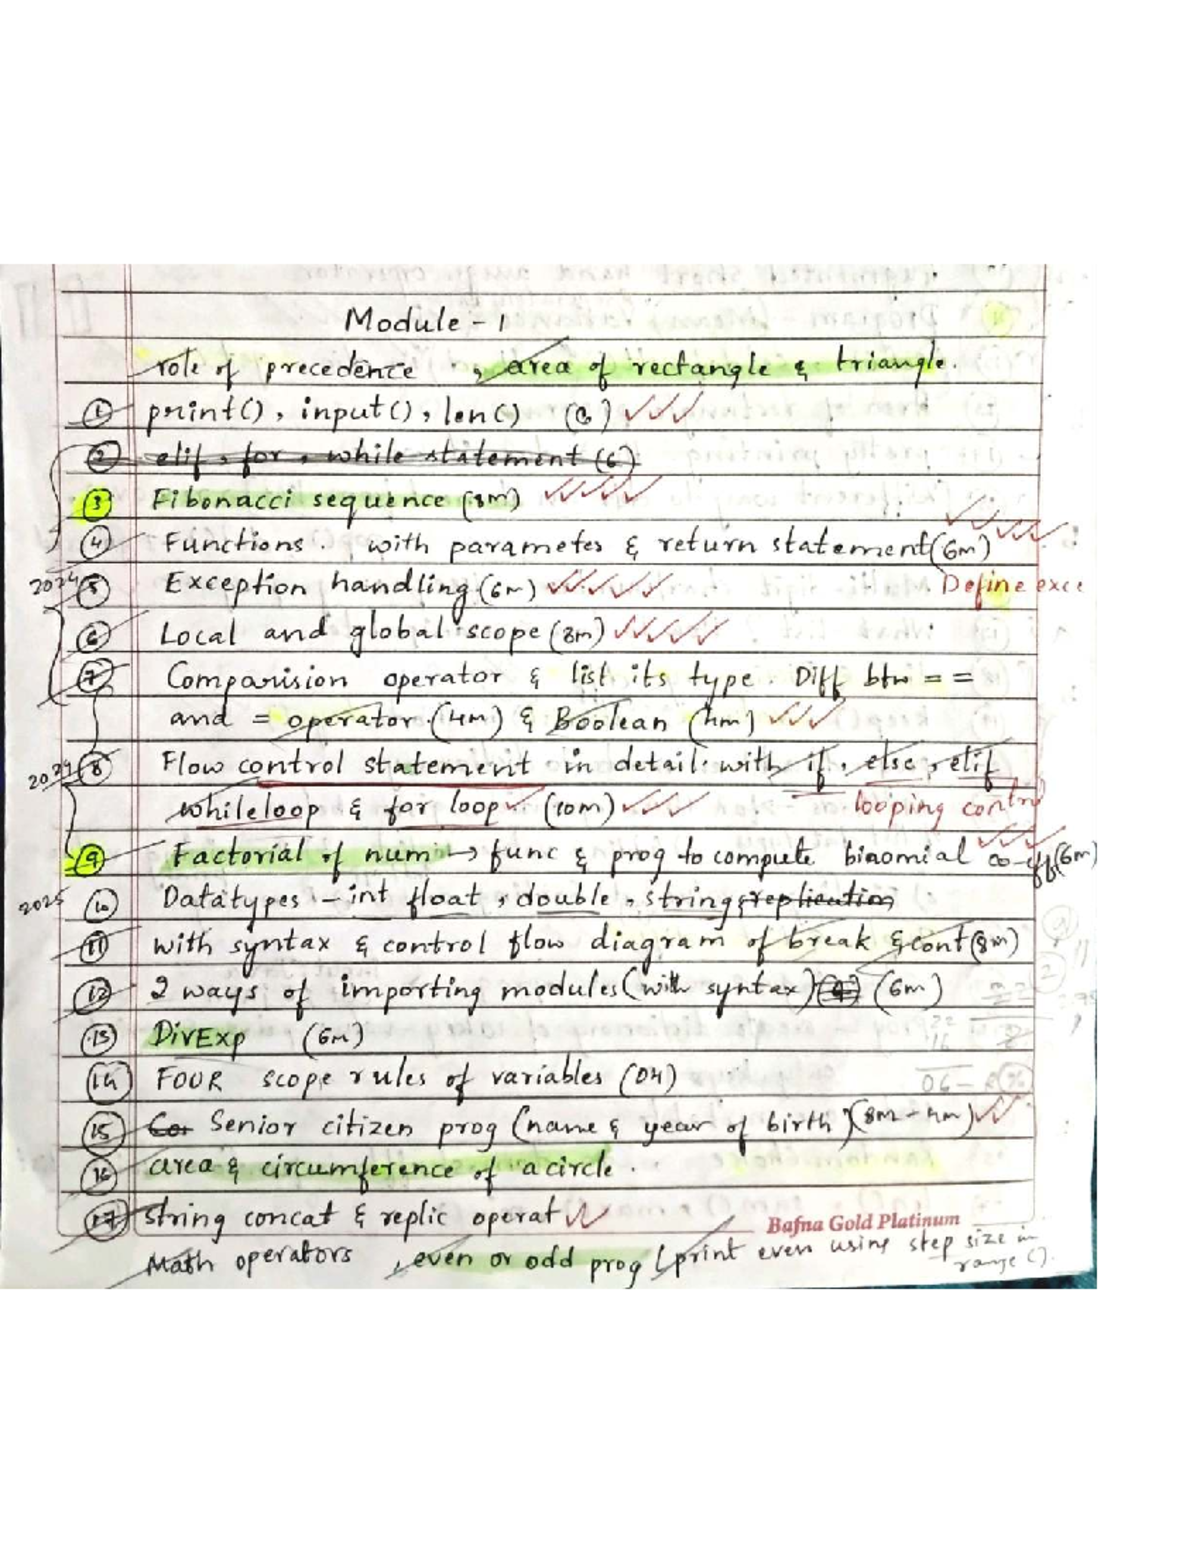 Module - 1
role of precedence , area of rectangle & triangle.
1 print(), input(), len() (6)
2 elif, for, while statement (6)
3 Fibonacci sequence (8m)
4 Functions. with parametes & return statement (6m)
2024 5 Exception handling (6m) Define exce
6 Local and global scope (8m)
7 Comparision operator & list its type. Diff btw ==
and = operator (4m) & Boolean (4m)
2024 8 Flow control statement in detail. with if, else, elif
whileloop & for loop (10m) looping contro
9 Factorial of num → func & prog to compute binomial co-eff (6m)
2025 10 Datatypes - int float, double, string & replication
11 with syntax & control flow diagram of break & cont (8m)
12 2 ways of importing modules (with syntax) (6m)
13 DivExp (6m)
14 FOUR scope rules of variables (04)
15 Senior citizen prog (name & year of birth) (8m - 4m)
16 area & circumference of a circle.
17 string concat & replic operat
Bafna Gold Platinum
Math operators , even or odd prog (print even using step size in
range ().